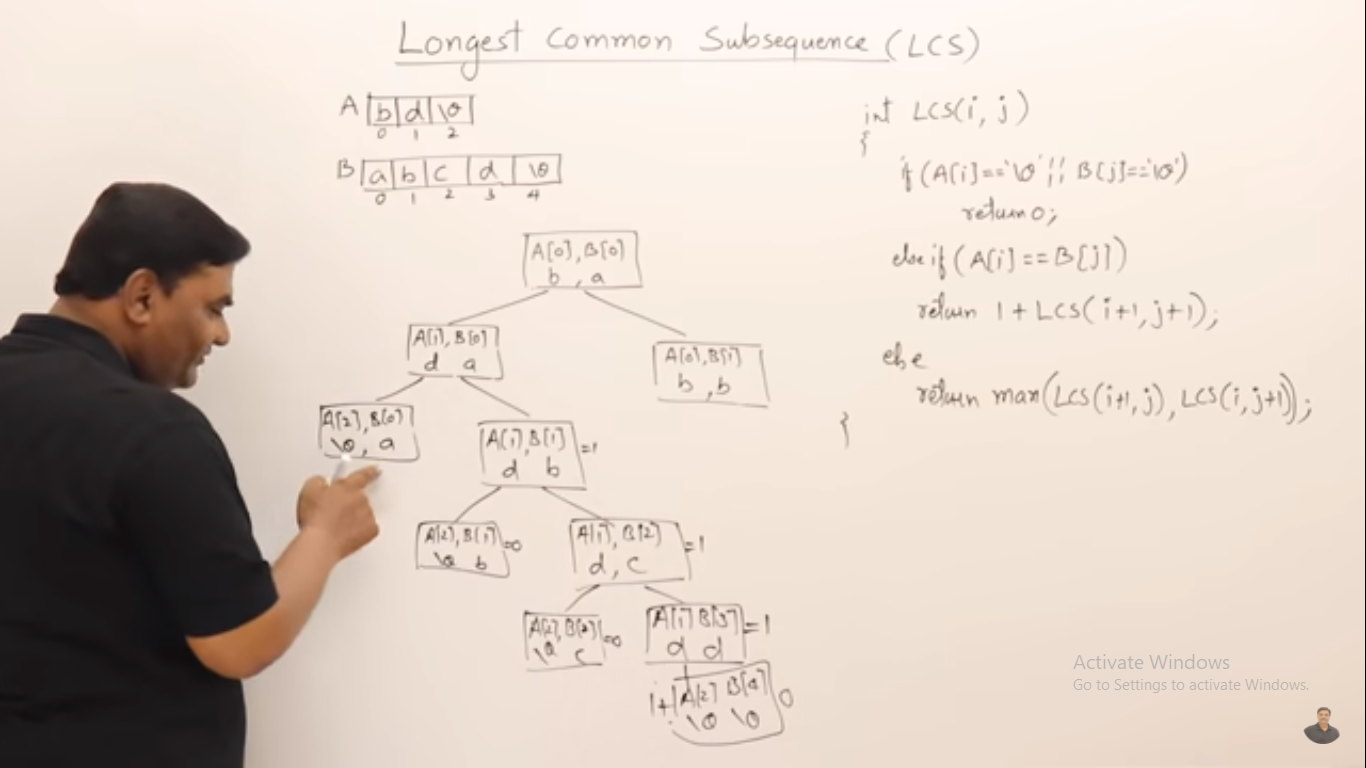 Longest Common Subsequence (LCS)
A b d \0
0 1 2
B a b c d \0
0 1 2 3 4
A[0], B[0]
b , a
A[1], B[0]
d a
A[0], B[1]
b , b
A[2], B[0]
\0 , a
A[1], B[1] =1
d b
A[2], B[1] =0
\0 b
A[1], B[2] =1
d , c
A[2], B[2] =0
\0 c
A[1] B[3] =1
d d
1+ A[2] B[4] 0
\0 \0
int LCS(i, j)
{
if (A[i]=='\0' || B[j]=='\0')
return 0;
else if (A[i] == B[j])
return 1 + LCS(i+1, j+1);
else
return max(LCS(i+1, j), LCS(i, j+1));
}
Activate Windows
Go to Settings to activate Windows.